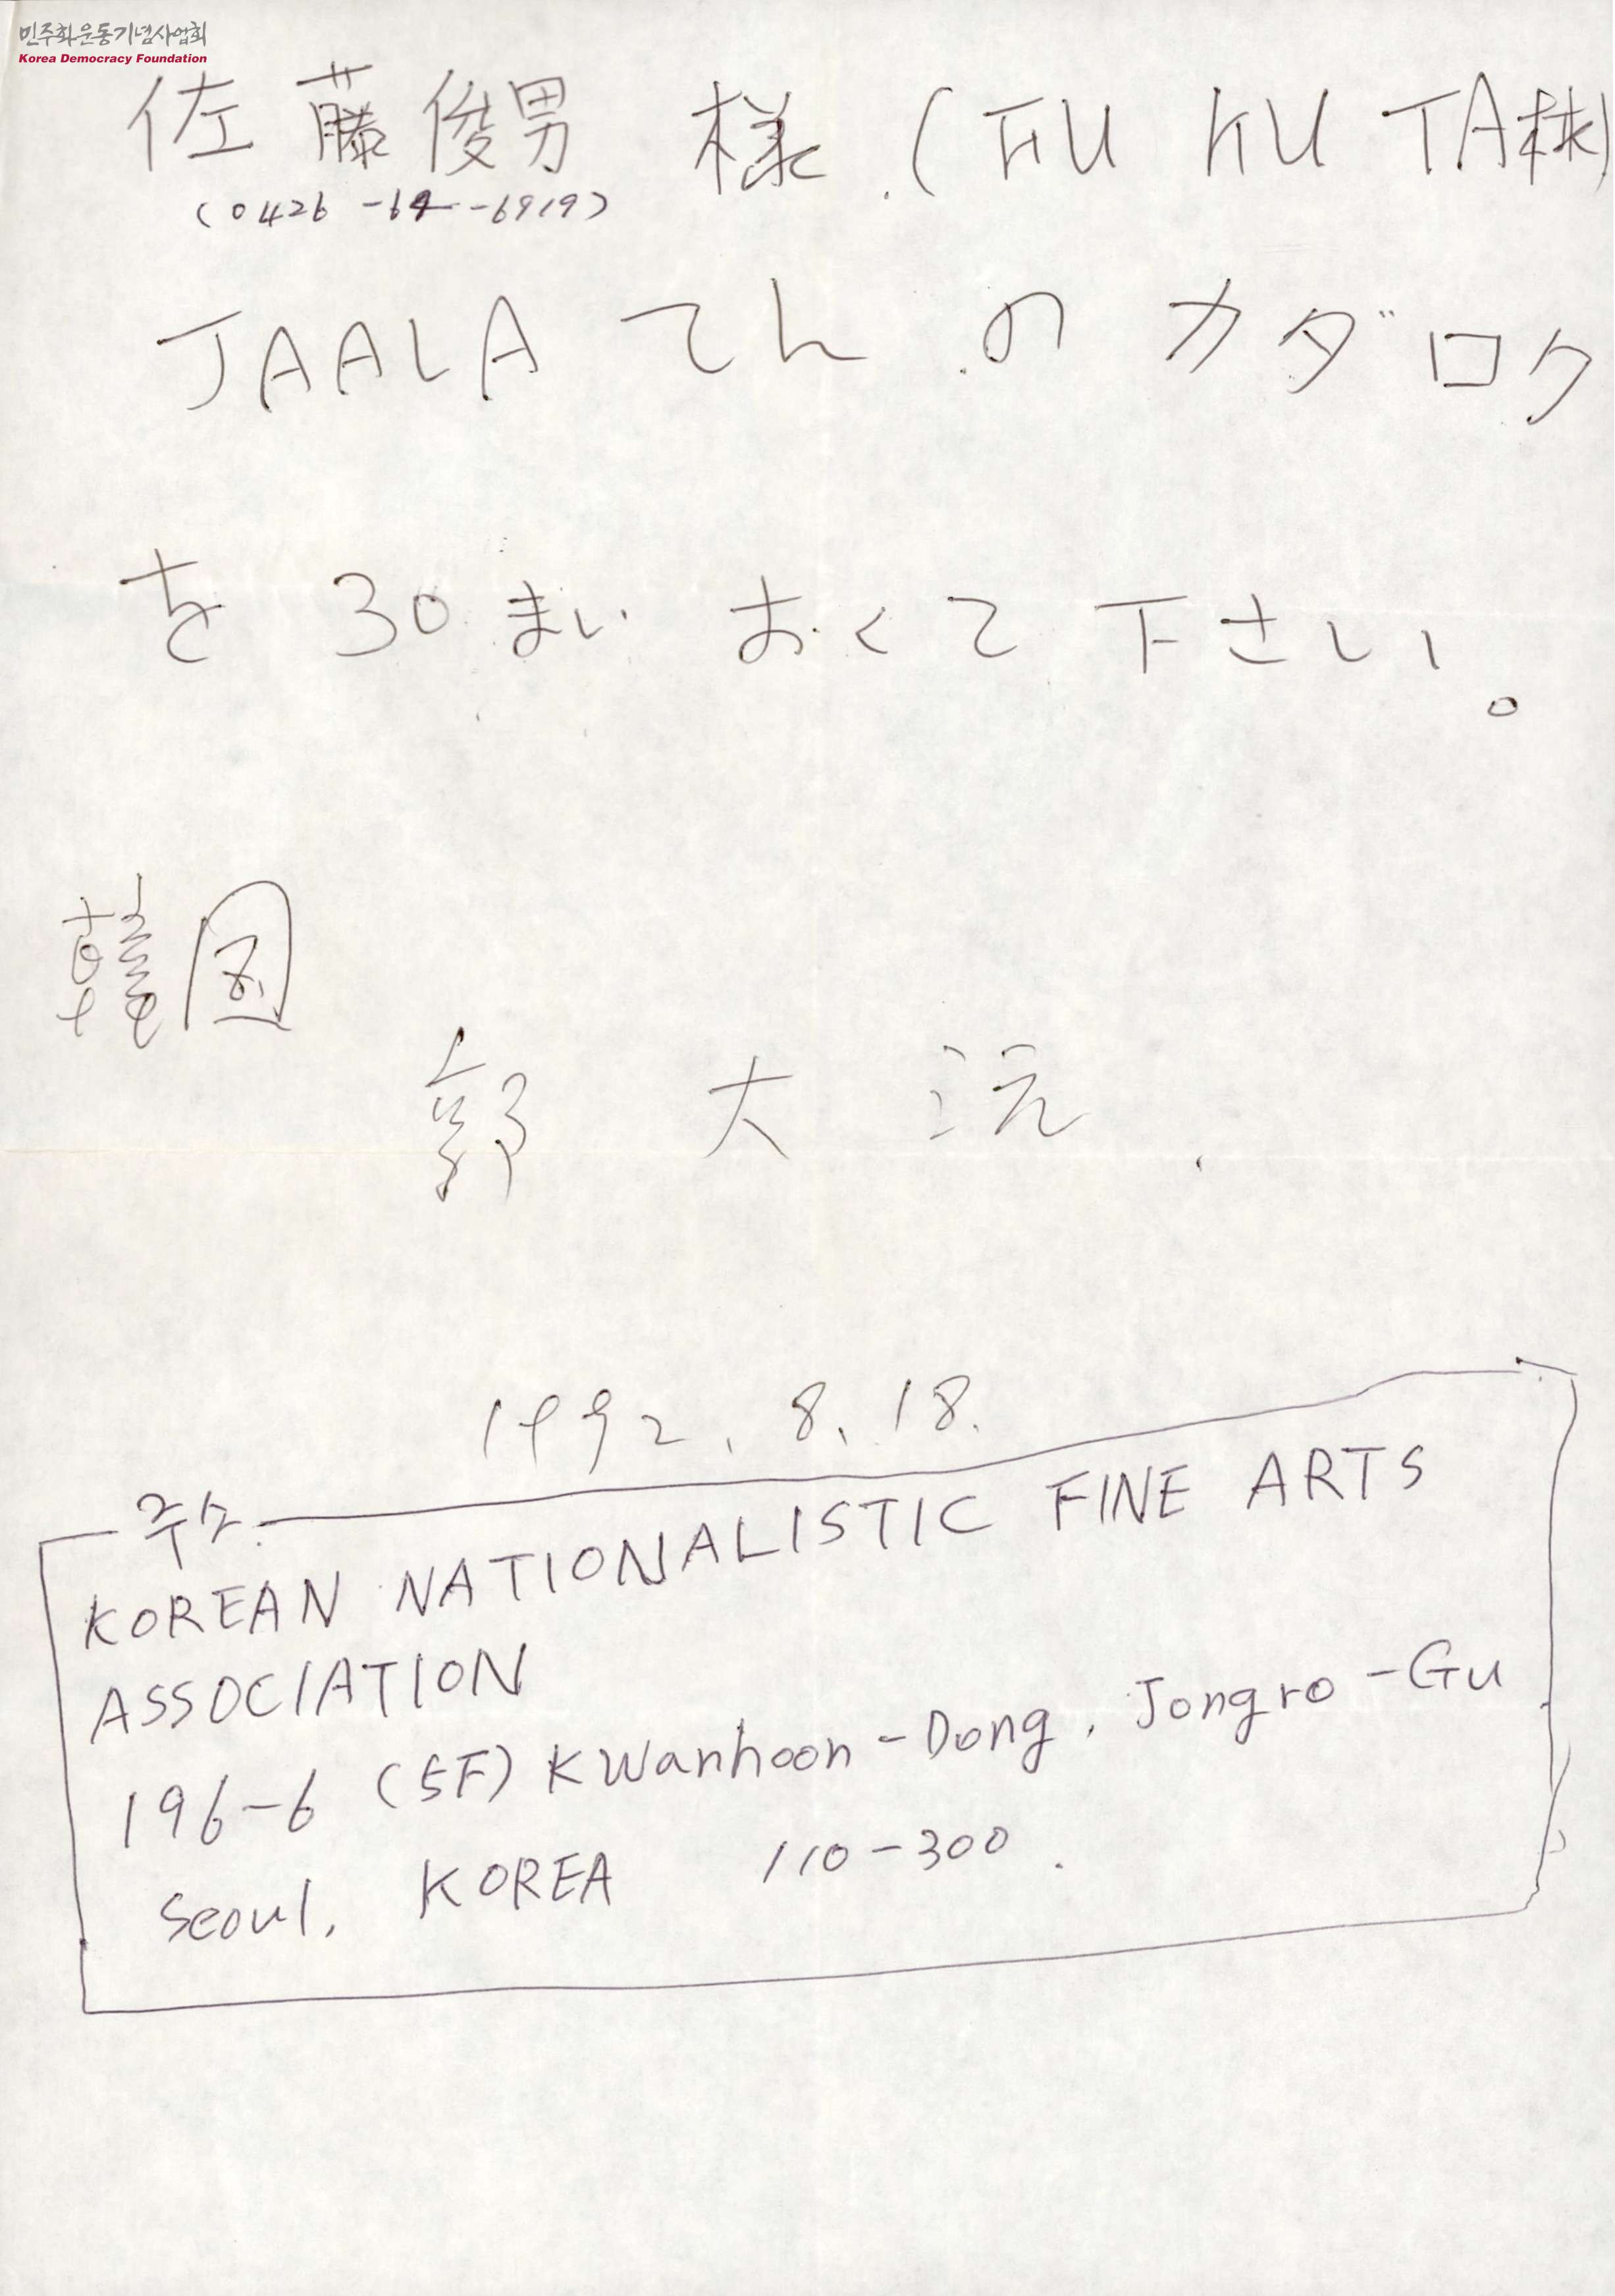 민주화운동기념사업회
Korea Democracy Foundation
佐藤俊男 様 (FU KU TA株)
(0426-64-6919)
JAALA てん の カダロク
を 30 まい おくて 下さい。
韓国
郭 大 沅
1992. 8. 18.
주소
KOREAN NATIONALISTIC FINE ARTS
ASSOCIATION
196-6 (5F) Kwanhoon-Dong, Jongro-Gu
Seoul, KOREA 110-300.